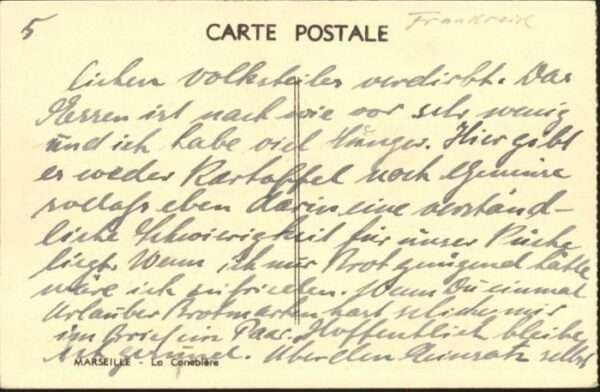 5
CARTE POSTALE
Frankreich
lichen Volksteiles verdirbt. Das
Essen ist nach wie vor sehr wenig
und ich habe viel Hunger. Hier gibt
es weder Kartoffel noch Gemüse
sodass eben darin eine verständ-
liche Schwierigkeit für unser Küche
liegt. Wenn ich nur Brot genügend hätte
wäre ich zufrieden. Wenn Du einmal
Urlauber Brotmarken hast schicke mir
im Brief ein Paar. Hoffentlich bleibe
ich gesund. Über den Einsatz selbst
MARSEILLE - La Canebière